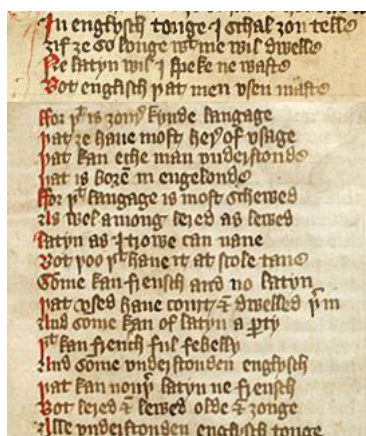 In englysch tonge I schal ȝou telle
ȝif ȝe so longe wᵗ me wil dwelle
Ne latyn wil I speke ne waste
Bot englisch þat men vsen maste
ffor þᵗ is ȝouꝛ kynde langage
þat ȝe haue most hey of vsage
þat kan eche man vnderstonde
þat is boꝛē in engelonde
ffor þᵗ langage is most schewed
Als wel among lered as lewed
latyn as I trowe can nane
Bot þoo þᵗ haue it at scole tane
Some kan frensch and no latyn
þat vsed haue court ⁊ dwelled þ͛ in
And some kan of latyn a ꝑty
þᵗ kan french ful febelly
And some vnderstonden englysch
þat kan nouþ͛ latyn ne frensch
Bot lered ⁊ lewed olde ⁊ ȝonge
Alle vnderstonden englisch tonge